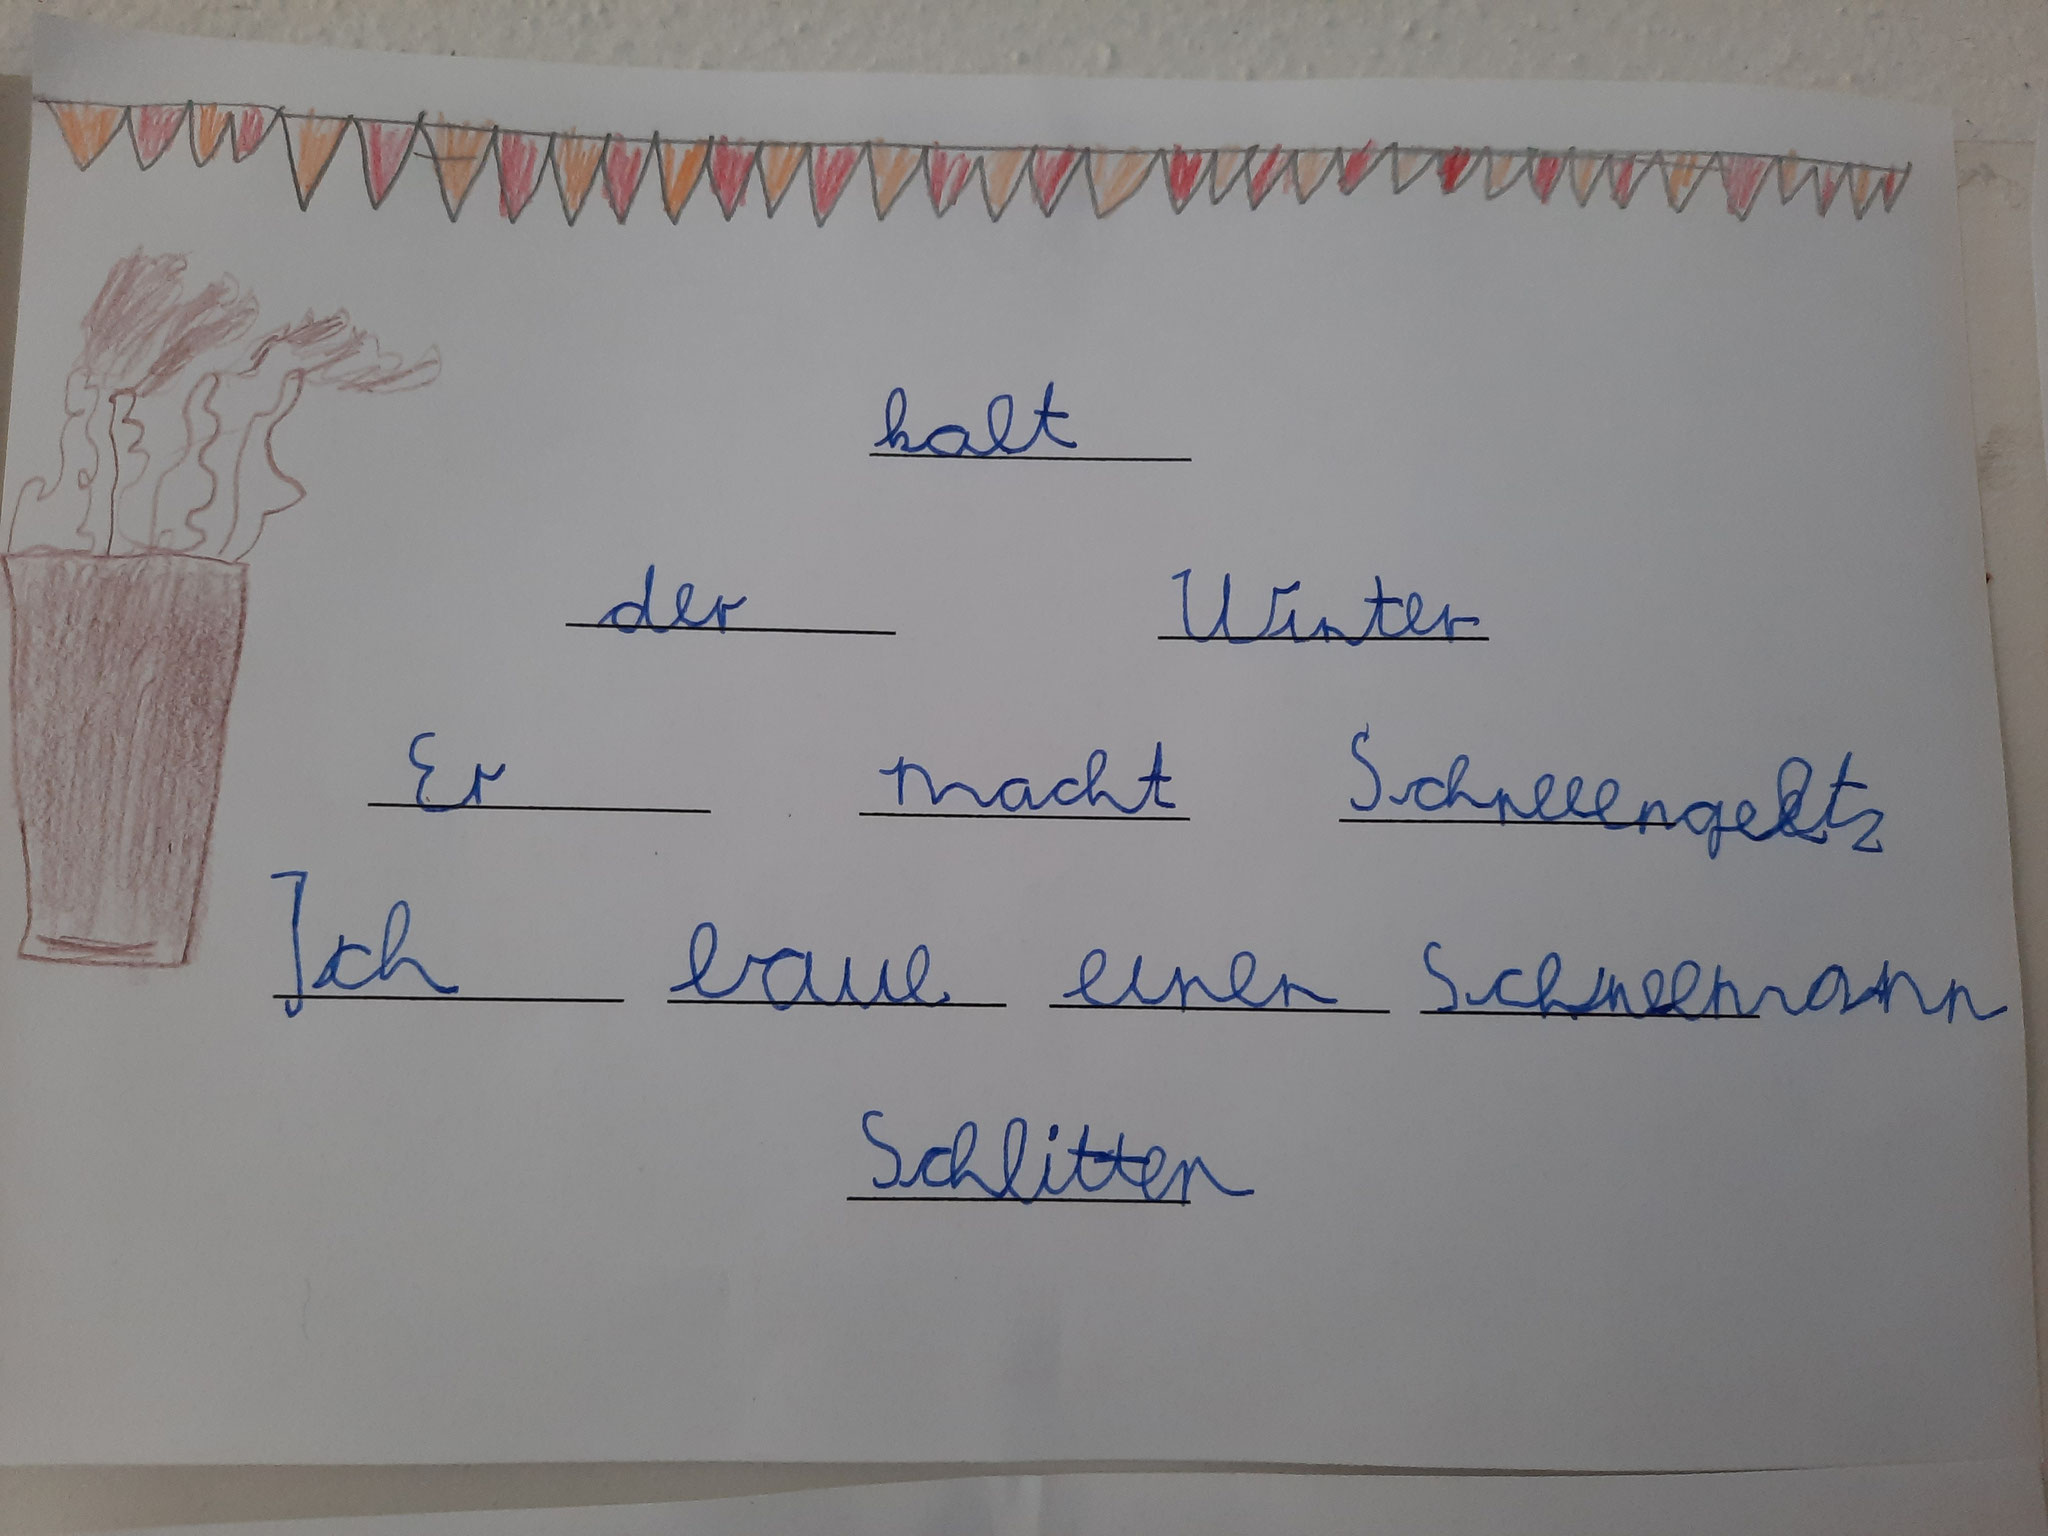 kalt
der Winter
Er macht
Ich baue einen Schneemann
Schlitten